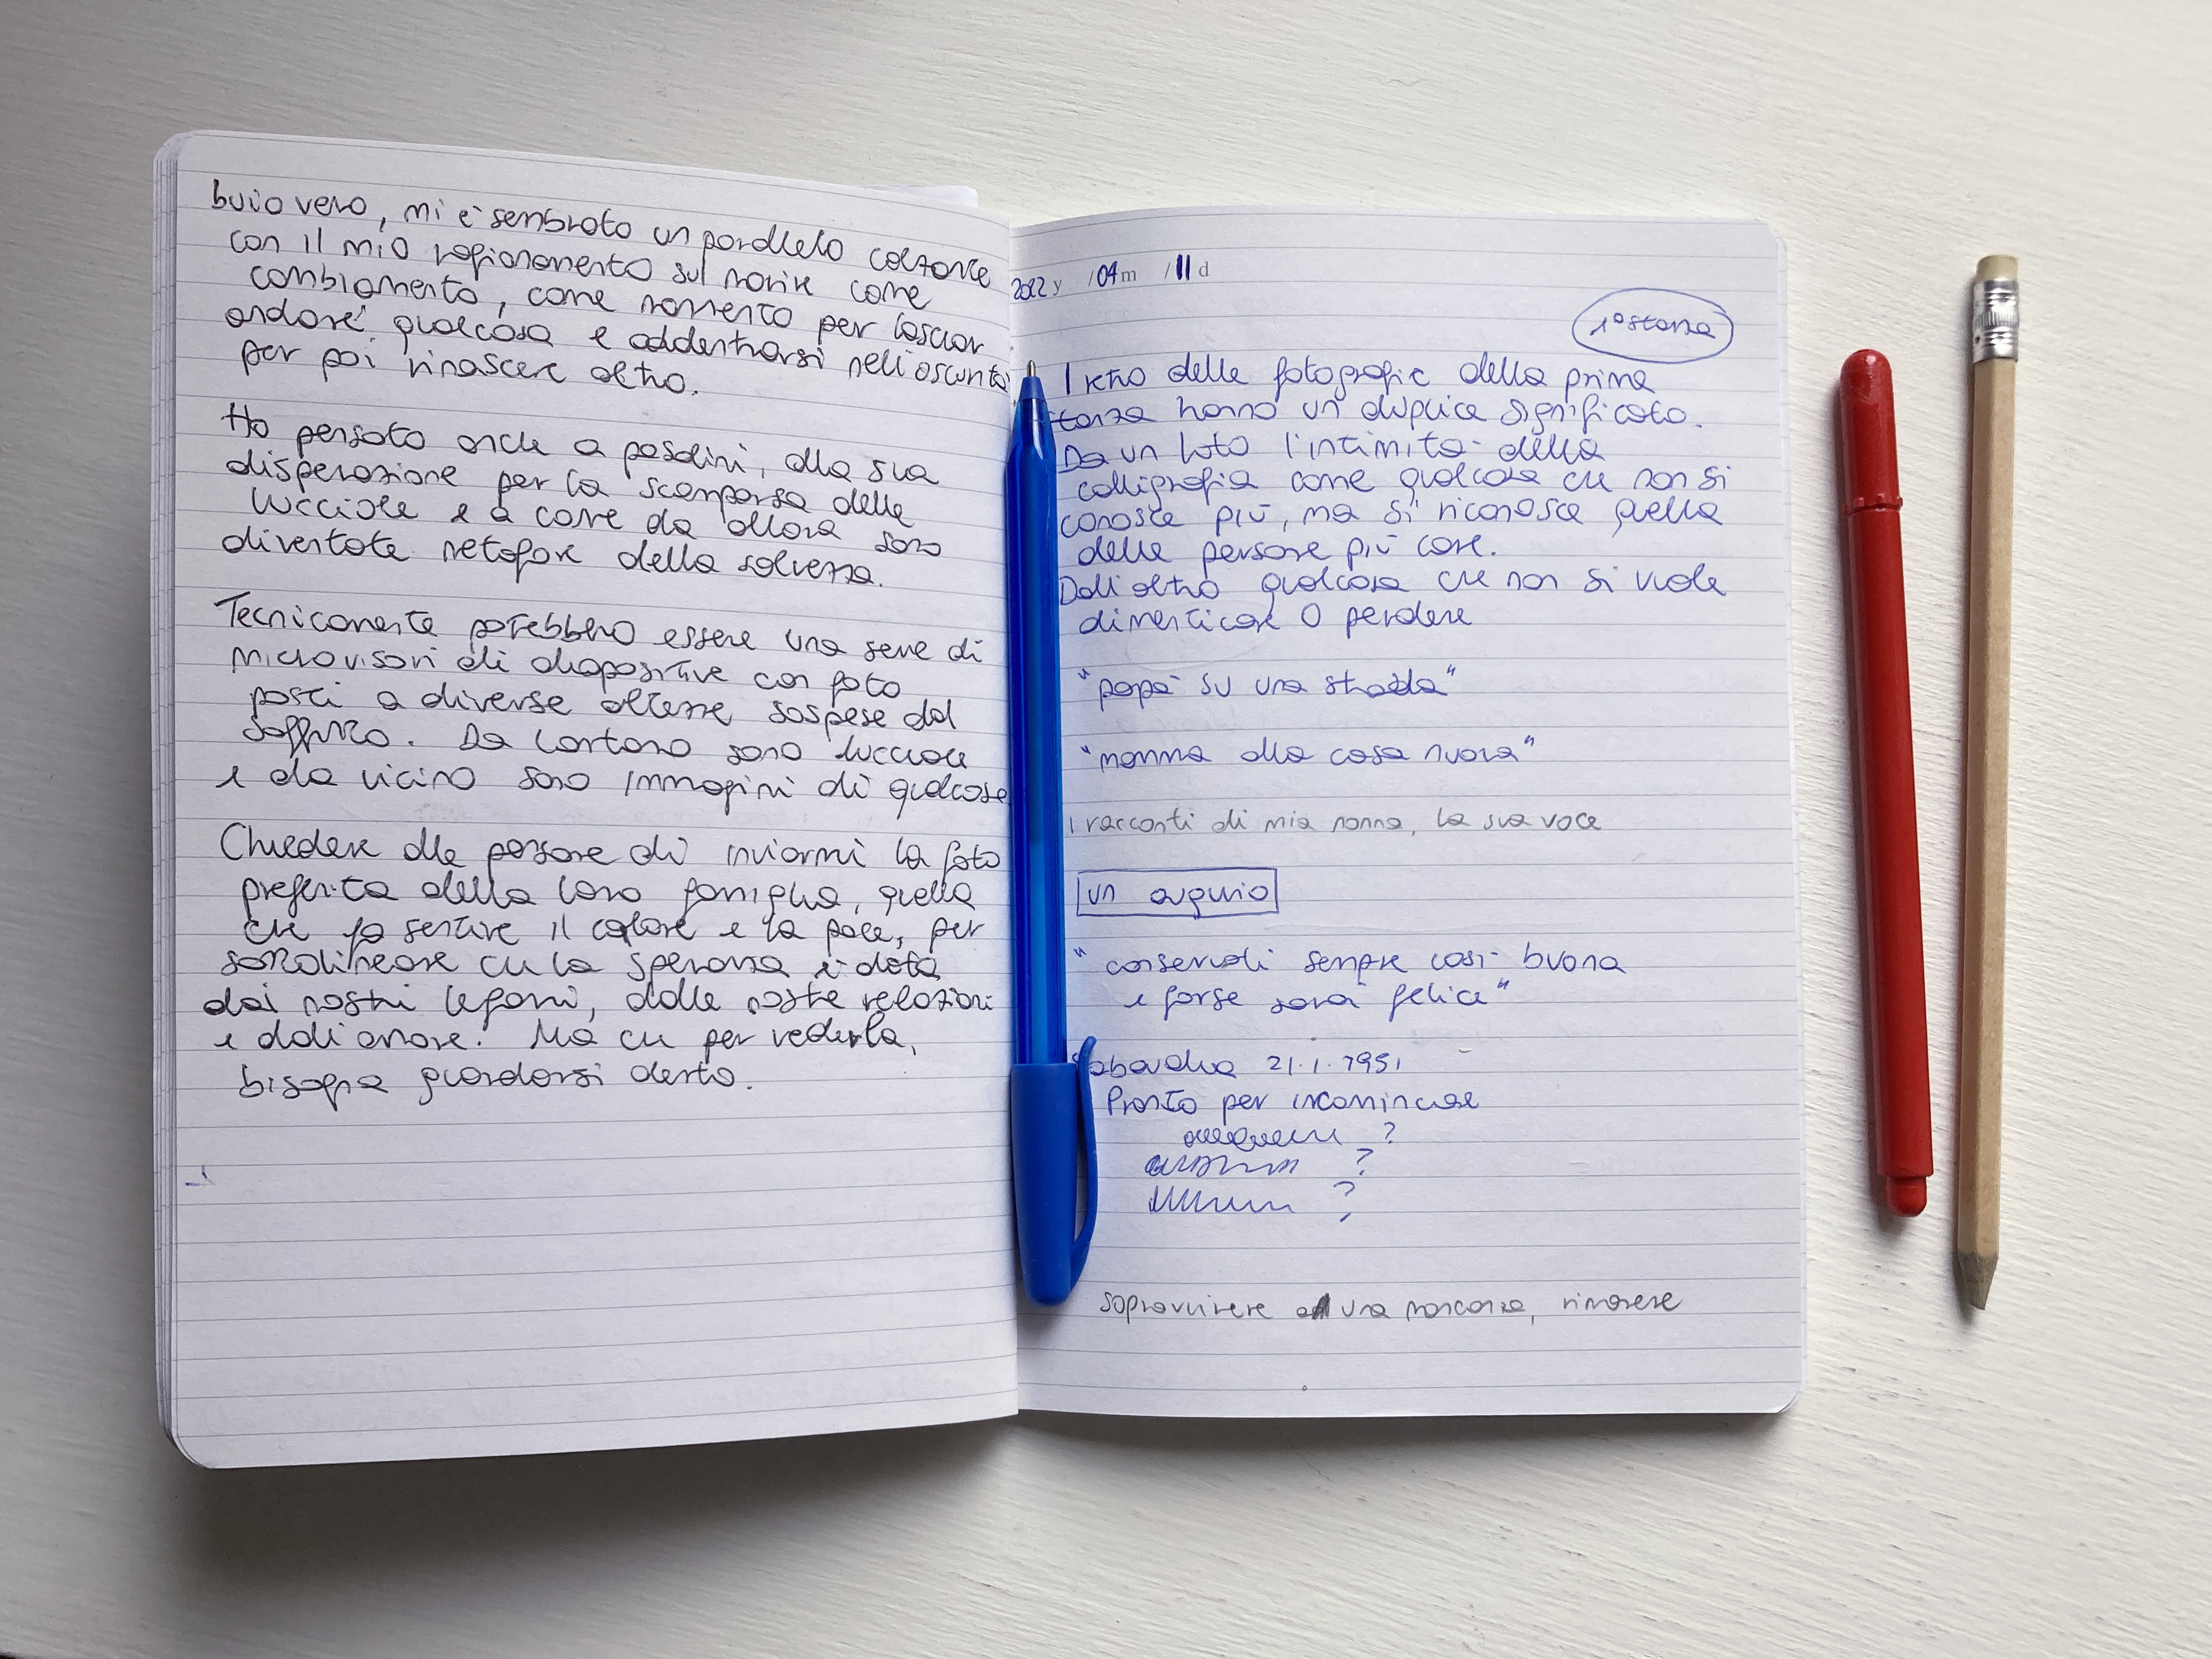 buio vero, mi è sembrato un parallelo calzante
con il mio ragionamento sul morire come
cambiamento, come momento per lasciar
andare qualcosa e addentrarsi nell'oscurità
per poi rinascere altro.
Ho pensato anche a pasolini, alla sua
disperazione per la scomparsa delle
lucciole e a come da allora sono
diventate metafore della salvezza.
Tecnicamente potrebbero essere una serie di
microvisori di diapositive con foto
posti a diverse altezze sospese dal
soffitto. Da lontano sono lucciole
e da vicino sono immagini di qualcosa
Chiedere alle persone di inviarmi la foto
preferita della loro famiglia, quella
che fa sentire il calore e la pace, per
sottolineare che la speranza è data
dai nostri legami, dalle nostre relazioni
e dall'amore. Ma che per vederla,
bisogna guardarsi dentro.
2022 y /04 m /11 d
1° stanza
I retro delle fotografie della prima
stanza hanno un duplice significato.
Da un lato l'intimità della
calligrafia come qualcosa che non si
conosce più, ma si riconosce quella
delle persone più care.
Dall'altro qualcosa che non si vuole
dimenticare o perdere
"papà su una strada"
"nonna alla casa nuova"
I racconti di mia nonna, la sua voce
un augurio
"conservati sempre così buona
e forse sarai felice"
Sabaudia 21.1.1951
Pronto per incominciare
?
?
?
sopravvivere a una mancanza, rimanere